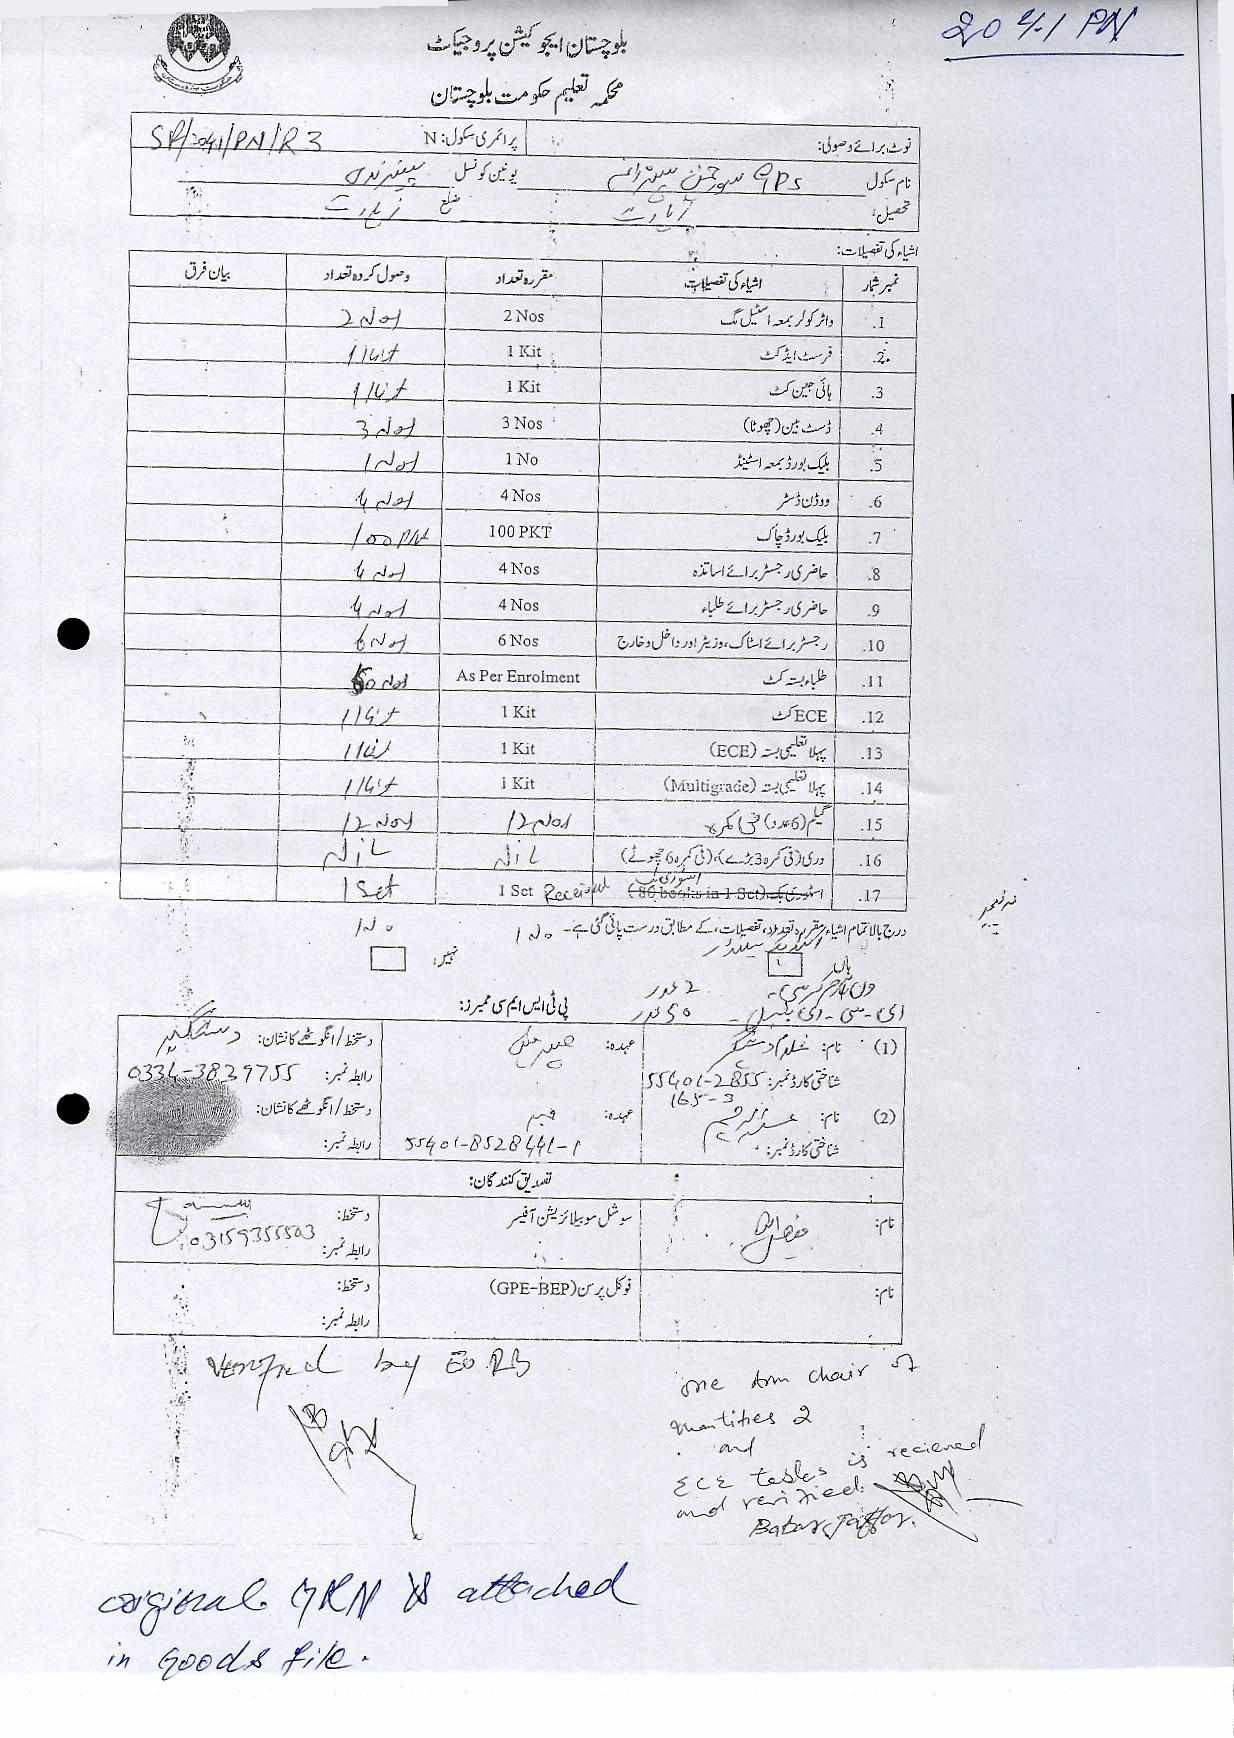 2041 PN
بلوچستان ایجوکیشن پروجیکٹ
محکمہ تعلیم حکومت بلوچستان
نوٹ برائے وصولی: پرائمری سکول: N SP/2041/PN/R3
نام سکول GPS یونین کونسل
تحصیل: زیارت ضلع زیارت
اشیاء کی تفصیلات:
نمبر شمار اشیاء کی تفصیلات مقررہ تعداد وصول کردہ تعداد بیان فرق
1. واٹر کولر بمعہ اسٹیل مگ 2 Nos 2 Nos
2. فرسٹ ایڈ کٹ 1 Kit 1 Kit
3. ہائی جین کٹ 1 Kit 1 Kit
4. ڈسٹ بین (چھوٹا) 3 Nos 3 Nos
5. بلیک بورڈ بمعہ اسٹینڈ 1 No 1 Nos
6. ووڈن ڈسٹر 4 Nos 4 Nos
7. بلیک بورڈ چاک 100 PKT 100 PKT
8. حاضری رجسٹر برائے اساتذہ 4 Nos 4 Nos
9. حاضری رجسٹر برائے طلباء 4 Nos 4 Nos
10. رجسٹر برائے اسٹاک، وزیٹر اور داخل وخارج 6 Nos 6 Nos
11. طلباء بستہ کٹ As Per Enrolment 50 Nos
12. ECE کٹ 1 Kit 1 Kit
13. پہلا تعلیمی بستہ (ECE) 1 Kit 1 Kit
14. پہلا تعلیمی بستہ (Multigrade) 1 Kit 1 Kit
15. گلیم (6 عدد) فی کمرہ 12 Nos 12 Nos
16. دری (فی کمرہ 3 بڑے)، (فی کمرہ 6 چھوٹے) NIL NIL
17. اسٹوری بک (80 books in 1 Set) اسٹوری بک 1 Set Received 1 Set
درج بالا تمام اشیاء مقررہ تعداد، تفصیلات، کے مطابق درست پائی گئی ہے۔ 1 No 1 No
ہاں نہیں:
ون آرم کرسی۔ 2 عدد
ای۔سی۔ای ٹیبل۔ 50 عدد
پی ٹی ایس ایم سی ممبرز:
(1) نام: غلام دستگیر عہدہ: چیئرمین دستخط/انگوٹھے کا نشان: دستگیر
شناختی کارڈ نمبر: 55401-2855165-3 رابطہ نمبر: 0334-3839755
(2) نام: عہدہ: ممبر دستخط/انگوٹھے کا نشان:
شناختی کارڈ نمبر: 55401-8528441-1 رابطہ نمبر:
تصدیق کنندگان:
نام: سوشل موبیلائزیشن آفیسر دستخط:
رابطہ نمبر: 03159355503
نام: فوکل پرسن (GPE-BEP) دستخط:
رابطہ نمبر:
Verified by
one Arm chair of
quantities 2
and
ECE tables is recieved
and verified.
Babar Jaffar.
original GRN is attached
in Goods file.